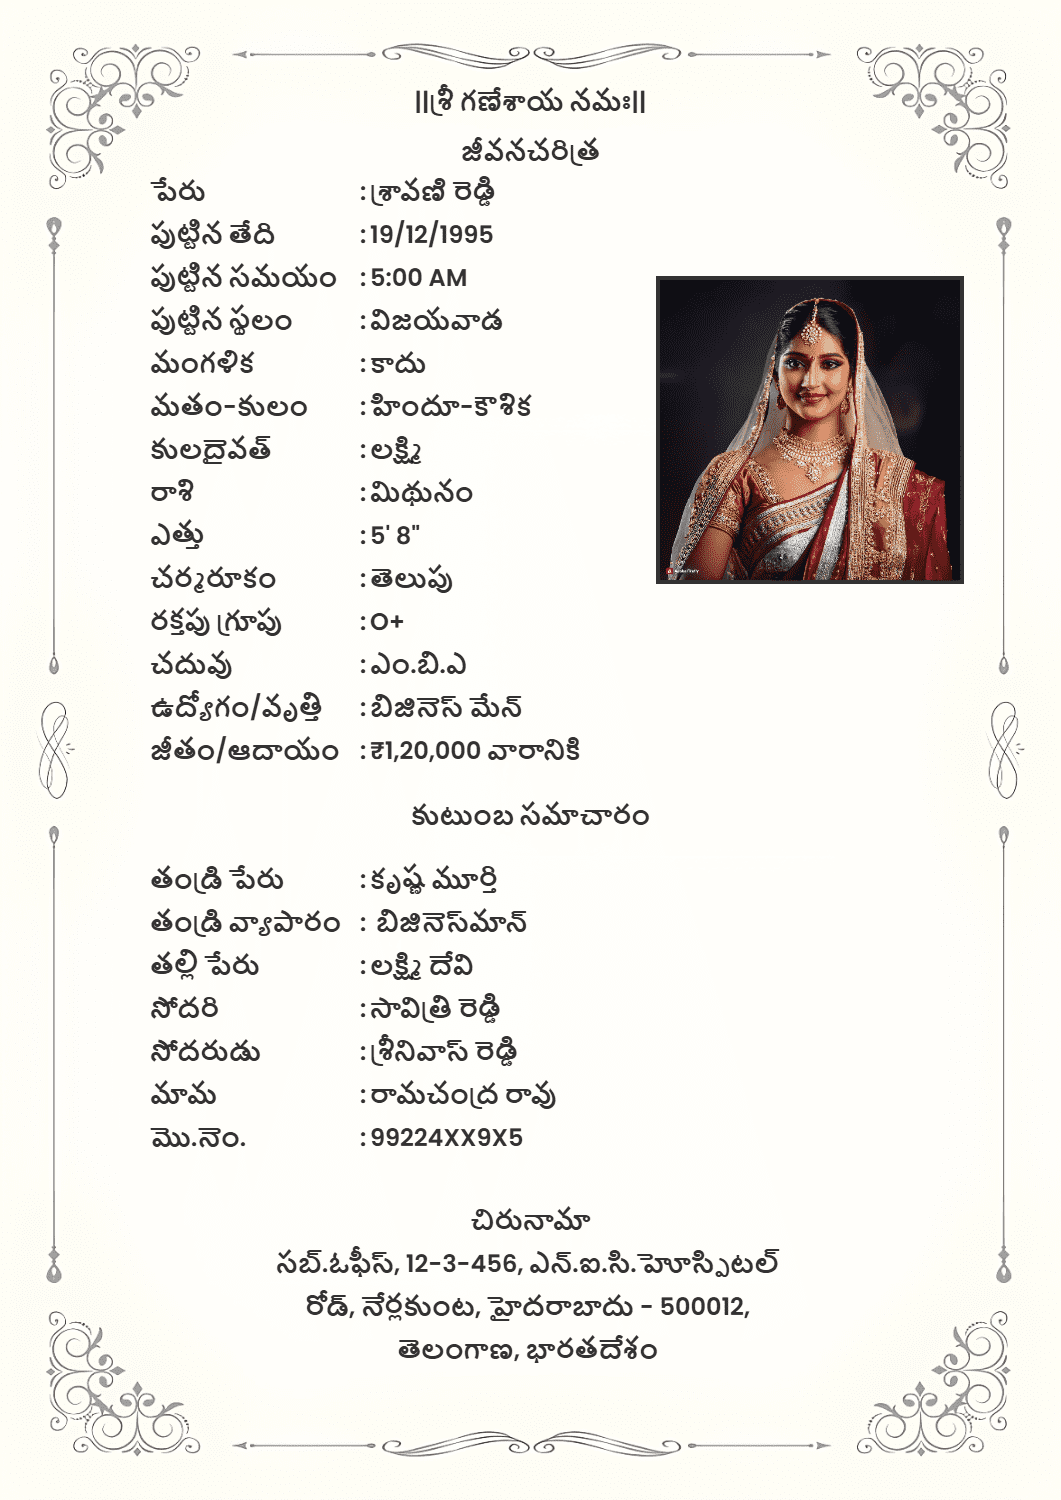 ||శ్రీ గణేశాయ నమః||
జీవనచరిత్ర
పేరు : శ్రావణి రెడ్డి
పుట్టిన తేది : 19/12/1995
పుట్టిన సమయం : 5:00 AM
పుట్టిన స్థలం : విజయవాడ
మంగళిక : కాదు
మతం-కులం : హిందూ-కౌశిక
కులదైవత్ : లక్ష్మి
రాశి : మిథునం
ఎత్తు : 5' 8"
చర్మరూకం : తెలుపు
రక్తపు గ్రూపు : O+
చదువు : ఎం.బి.ఎ
ఉద్యోగం/వృత్తి : బిజినెస్ మేన్
జీతం/ఆదాయం : ₹1,20,000 వారానికి
కుటుంబ సమాచారం
తండ్రి పేరు : కృష్ణ మూర్తి
తండ్రి వ్యాపారం : బిజినెస్‌మాన్
తల్లి పేరు : లక్ష్మి దేవి
సోదరి : సావిత్రి రెడ్డి
సోదరుడు : శ్రీనివాస్ రెడ్డి
మామ : రామచంద్ర రావు
మొ.నెం. : 99224XX9X5
చిరునామా
సబ్.ఓఫీస్, 12-3-456, ఎన్.ఐ.సి.హెూస్పిటల్
రోడ్, నేర్లకుంట, హైదరాబాదు - 500012,
తెలంగాణ, భారతదేశం